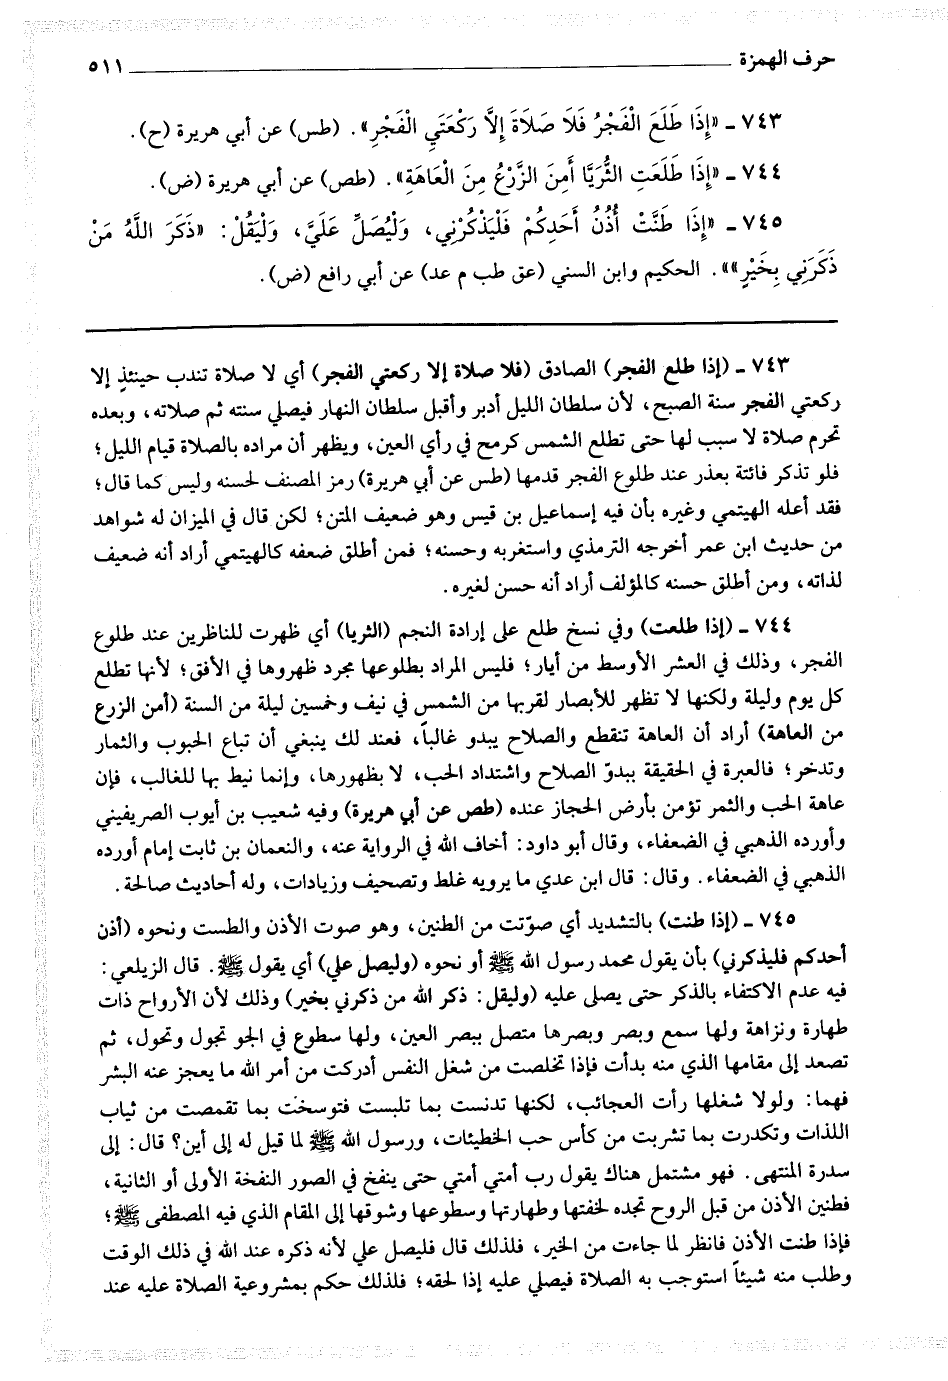 حرف الهمزة ٥١١
٧٤٣ ـ «إِذَا طَلَعَ الْفَجْرُ فَلَا صَلَاةَ إِلَّا رَكْعَتَيِ الْفَجْرِ». (طس) عن أبي هريرة (ح).
٧٤٤ ـ «إِذَا طَلَعَتِ الثُّرَيَّا أَمِنَ الزَّرْعُ مِنَ الْعَاهَةِ». (طص) عن أبي هريرة (ض).
٧٤٥ ـ «إِذَا طَنَّتْ أُذُنُ أَحَدِكُمْ فَلْيَذْكُرْنِي، وَلْيُصَلِّ عَلَيَّ، وَلْيَقُلْ: «ذَكَرَ اللَّهُ مَنْ
ذَكَرَنِي بِخَيْرٍ»». الحكيم وابن السني (عق طب م عد) عن أبي رافع (ض).
٧٤٣ ـ (إذا طلع الفجر) الصادق (فلا صلاة إلا ركعتي الفجر) أي لا صلاة تندب حينئذٍ إلا
ركعتي الفجر سنة الصبح، لأن سلطان الليل أدبر وأقبل سلطان النهار فيصلي سنته ثم صلاته، وبعده
تحرم صلاة لا سبب لها حتى تطلع الشمس كرمح في رأي العين، ويظهر أن مراده بالصلاة قيام الليل؛
فلو تذكر فائتة بعذر عند طلوع الفجر قدمها (طس عن أبي هريرة) رمز المصنف لحسنه وليس كما قال؛
فقد أعله الهيتمي وغيره بأن فيه إسماعيل بن قيس وهو ضعيف المتن؛ لكن قال في الميزان له شواهد
من حديث ابن عمر أخرجه الترمذي واستغربه وحسنه؛ فمن أطلق ضعفه كالهيتمي أراد أنه ضعيف
لذاته، ومن أطلق حسنه كالمؤلف أراد أنه حسن لغيره.
٧٤٤ ـ (إذا طلعت) وفي نسخ طلع على إرادة النجم (الثريا) أي ظهرت للناظرين عند طلوع
الفجر، وذلك في العشر الأوسط من أيار؛ فليس المراد بطلوعها مجرد ظهورها في الأفق؛ لأنها تطلع
كل يوم وليلة ولكنها لا تظهر للأبصار لقربها من الشمس في نيف وخمسين ليلة من السنة (أمن الزرع
من العاهة) أراد أن العاهة تنقطع والصلاح يبدو غالباً، فعند لك ينبغي أن تباع الحبوب والثمار
وتدخر؛ فالعبرة في الحقيقة ببدوّ الصلاح واشتداد الحب، لا بظهورها، وإنما نيط بها للغالب، فإن
عاهة الحب والثمر تؤمن بأرض الحجاز عنده (طص عن أبي هريرة) وفيه شعيب بن أيوب الصريفيني
وأورده الذهبي في الضعفاء، وقال أبو داود: أخاف الله في الرواية عنه، والنعمان بن ثابت إمام أورده
الذهبي في الضعفاء. وقال: قال ابن عدي ما يرويه غلط وتصحيف وزيادات، وله أحاديث صالحة.
٧٤٥ ـ (إذا طنت) بالتشديد أي صوّتت من الطنين، وهو صوت الأذن والطست ونحوه (أذن
أحدكم فليذكرني) بأن يقول محمد رسول الله ﷺ أو نحوه (وليصل علي) أي يقول ﷺ. قال الزيلعي:
فيه عدم الاكتفاء بالذكر حتى يصلى عليه (وليقل: ذكر الله من ذكرني بخير) وذلك لأن الأرواح ذات
طهارة ونزاهة ولها سمع وبصر وبصرها متصل ببصر العين، ولها سطوع في الجو تجول وتحول، ثم
تصعد إلى مقامها الذي منه بدأت فإذا تخلصت من شغل النفس أدركت من أمر الله ما يعجز عنه البشر
فهما: ولولا شغلها رأت العجائب، لكنها تدنست بما تلبست فتوسخت بما تقمصت من ثياب
اللذات وتكدرت بما تشربت من كأس حب الخطيئات، ورسول الله ﷺ لما قيل له إلى أين؟ قال: إلى
سدرة المنتهى. فهو مشتمل هناك يقول رب أمتي أمتي حتى ينفخ في الصور النفخة الأولى أو الثانية،
فطنين الأذن من قبل الروح تجده لخفتها وطهارتها وسطوعها وشوقها إلى المقام الذي فيه المصطفى ﷺ؛
فإذا طنت الأذن فانظر لما جاءت من الخير، فلذلك قال فليصل علي لأنه ذكره عند الله في ذلك الوقت
وطلب منه شيئاً استوجب به الصلاة فيصلي عليه إذا لحقه؛ فلذلك حكم بمشروعية الصلاة عليه عند